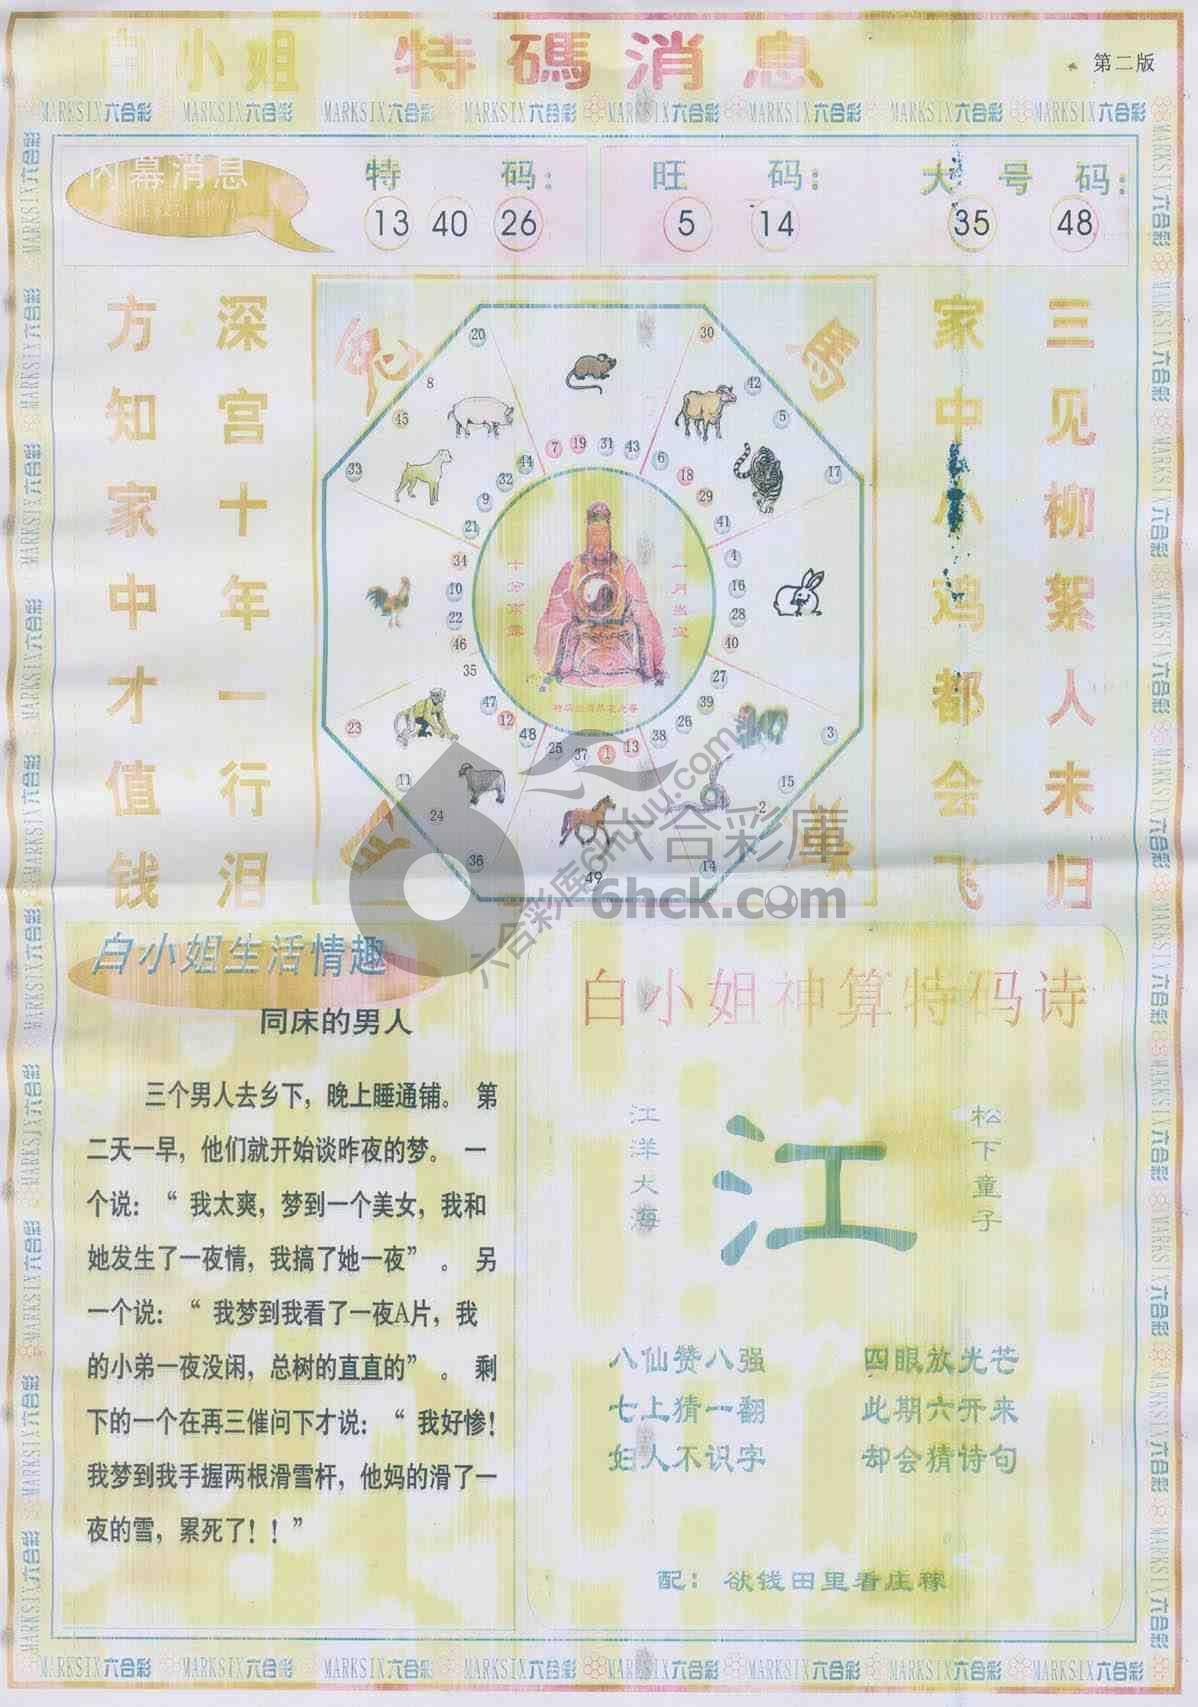 白小姐 特碼消息
第二版
MARKSIX六合彩 MARKSIX六合彩 MARKSIX六合彩 MARKSIX六合彩 MARKSIX六合彩 MARKSIX六合彩 MARKSIX六合彩 MARKSIX六合彩
内幕消息
特 码:
13 40 26
旺 码:
5 14
大 号 码:
35 48
三见柳絮人未归
家中小鸡都会飞
深宫十年一行泪
方知家中才值钱
兔
馬
20
30
8
42
45
5
33
17
7 19 31 43
44
6
32
18
9
29
21
41
34
4
10
16
22
28
46
40
35
27
47
39
12
26
48
38
25 37 1 13
23
3
11
15
24
2
36
14
49
六合彩庫
6hck.com
白小姐生活情趣
同床的男人
三个男人去乡下，晚上睡通铺。 第
二天一早，他们就开始谈昨夜的梦。 一
个说：“ 我太爽，梦到一个美女，我和
她发生了一夜情，我搞了她一夜” 。 另
一个说：“ 我梦到我看了一夜A片，我
的小弟一夜没闲，总树的直直的” 。 剩
下的一个在再三催问下才说：“ 我好惨！
我梦到我手握两根滑雪杆，他妈的滑了一
夜的雪，累死了！！”
白小姐神算特码诗
松下童子
江
江洋大海
八仙赞八强 四眼放光芒
七上猜一翻 此期六开来
妇人不识字 却会猜诗句
配：欲钱田里看庄稼
MARKSIX六合彩 MARKSIX六合彩 MARKSIX六合彩 MARKSIX六合彩 MARKSIX六合彩 MARKSIX六合彩 MARKSIX六合彩 MARKSIX六合彩